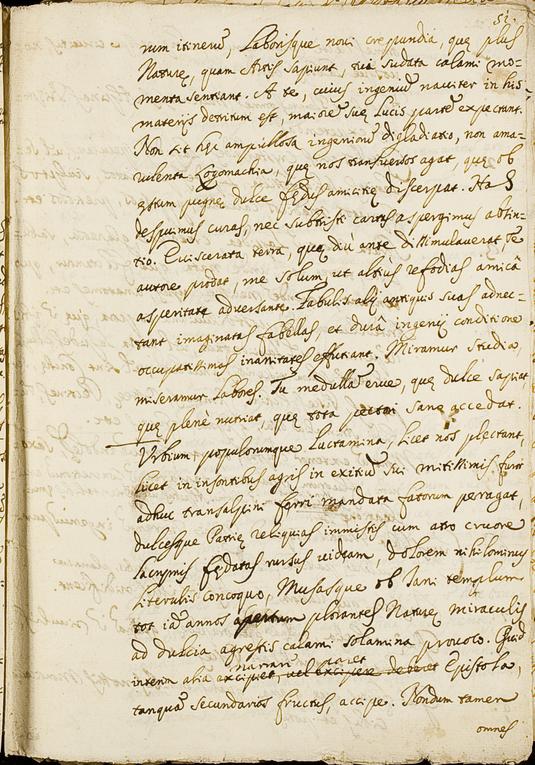 51.
rum itinerũ, Laborisque novi crepundia, quę plus
Naturę, quam Artis sapiunt, tua sudata calami mo=
menta sentiant. A te, cuius ingeniũ naviter in his
materijs detritum est, maiorẽ suę Lucis partẽ expectant.
Non sit hęc ampullosa ingeniorũ digladiatio, non ama-
rulenta Logomachia, quę nos transversos agat, quę ob
pugnę dulce fędus amicitię discerpat. Has
despuimus curas, nec subtristi cartas aspergimus absin-
tio. Eviscerata terra, quę diù ante dissimulaverat Te
autore prodat, me solum ut altius refodias amicâ
asperitate adversante. Tabulis alij antiquis suas adnec-
tant imaginatas fabellas, et durâ ingenij conditione
occupatissimas inanitates effutiant. Miramur studia,
miseramur Labores. Tu medullã erue, quę dulce sapiat
quę plenè nutriat, quę tota pectori sane accedat.
Urbium, populorumque Luctamina, licet nos plectant,
licet in insontibus agris in exitiũ sui mitissimis furor
adhuc transalpini ferri mandata fatorum peragat,
dulcesque Patrię reliquias immistis cum atro cruore
lacrymis fędatas rursus videam, dolorem nihilominus
Literulis concoquo, Musasque ob Iani templum
tot iã annos apertum plorantes Naturę miraculis
ad dulcia agrestis calami solamina provoco. Quid
narrari
interim alia excipiet, vel excipere debeat Epistola,
tanquã secundarios fructus, accipe. Nondum tamen
omnes